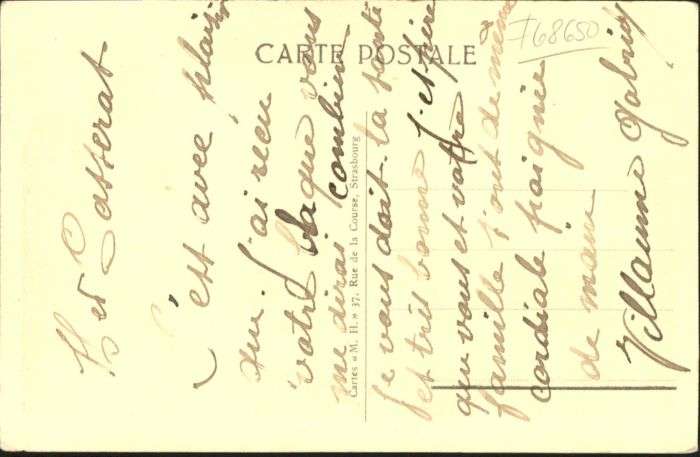 CARTE POSTALE
768650
Cartes « M. H. » 37, Rue de la Course, Strasbourg
Casserat
C'est avec plaisir
que j'ai reçu
votre blague vous
me dirai combien
je vous doit. la santé
est très bonne j'espère
que vous et votre
famille sont de même
cordiale poignée
de main
Villaume Gabriel